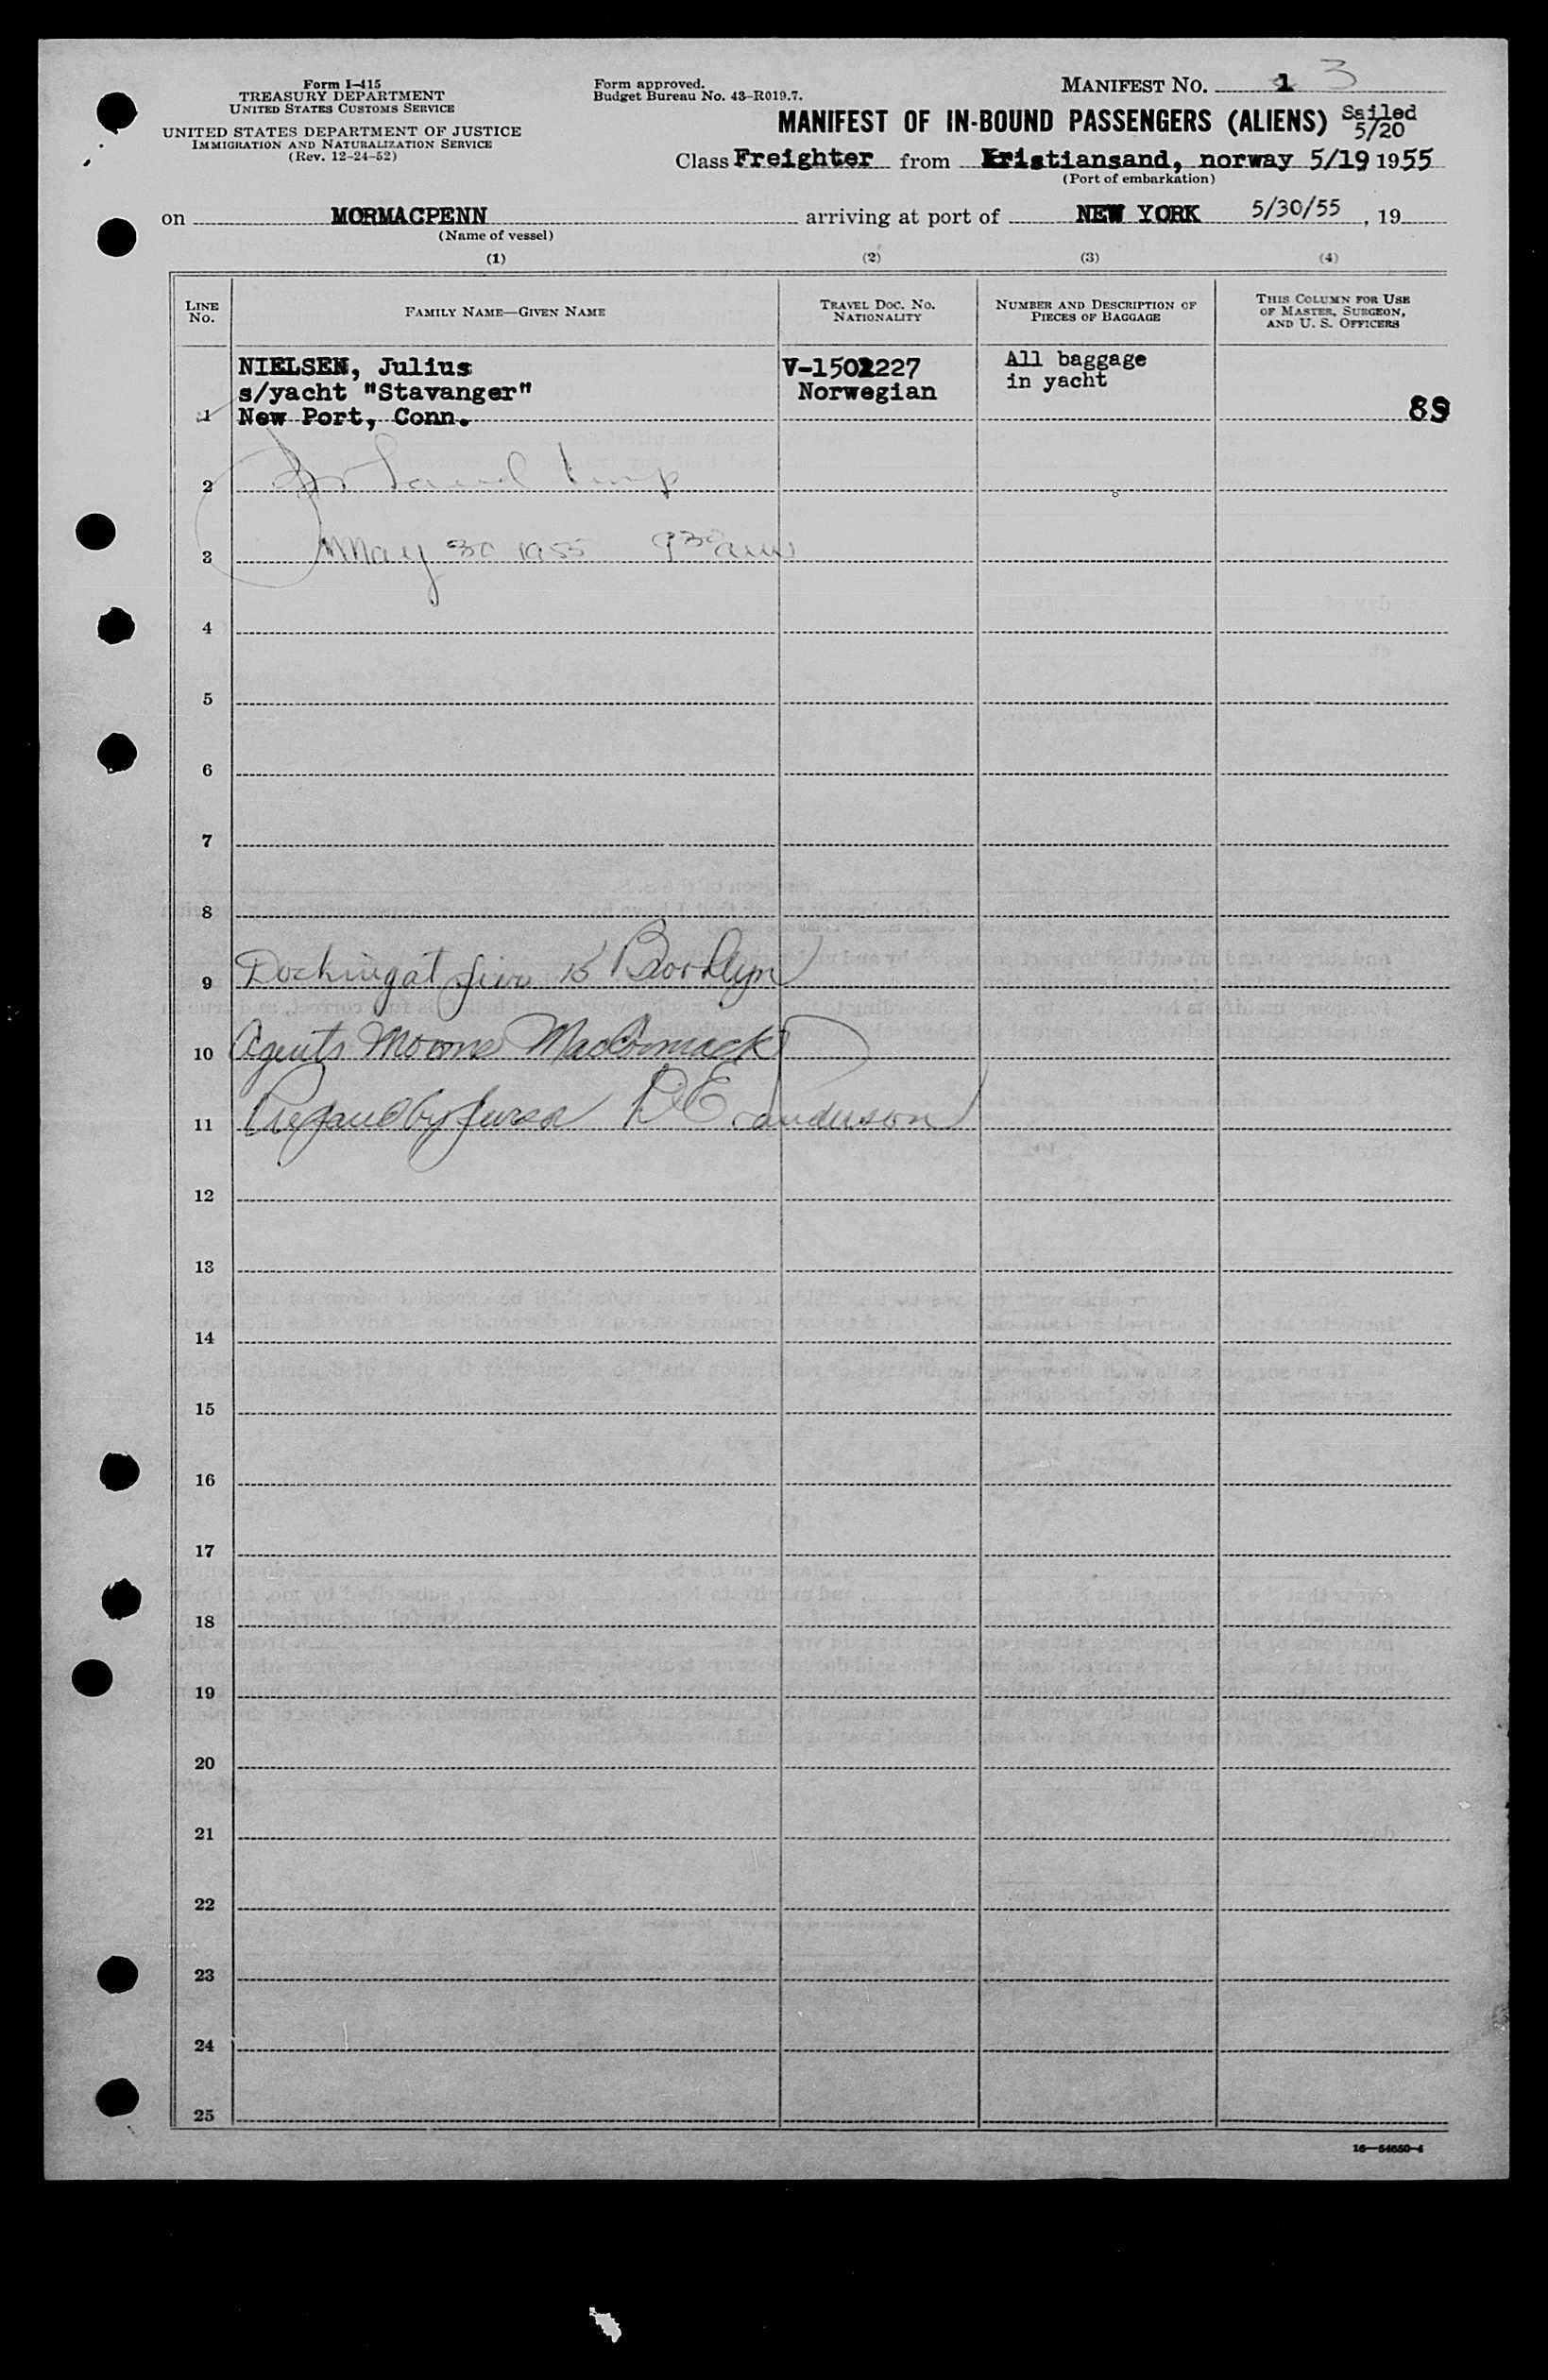 Form I-415
TREASURY DEPARTMENT
UNITED STATES CUSTOMS SERVICE
UNITED STATES DEPARTMENT OF JUSTICE
IMMIGRATION AND NATURALIZATION SERVICE
(Rev. 12-24-52)
Form approved.
Budget Bureau No. 43-R019.7.
MANIFEST NO. 1 3
MANIFEST OF IN-BOUND PASSENGERS (ALIENS) Sailed 5/20
Class Freighter from Kristiansand, norway 5/19 1955
(Port of embarkation)
on MORMACPENN arriving at port of NEW YORK 5/30/55, 19
(Name of vessel)
(1) (2) (3) (4)
LINE NO.
FAMILY NAME—GIVEN NAME
TRAVEL DOC. NO. NATIONALITY
NUMBER AND DESCRIPTION OF PIECES OF BAGGAGE
THIS COLUMN FOR USE OF MASTER, SURGEON, AND U. S. OFFICERS
NIELSEN, Julius V-1502227 All baggage
s/yacht "Stavanger" Norwegian in yacht
1 New Port, Conn. 89
2
3 May 30 1955 9 30 am
4
5
6
7
8
9 Docking at pier 15 Brooklyn
10 Agents Moore MacCormack
11 Prepared by Purser Anderson
12
13
14
15
16
17
18
19
20
21
22
23
24
25
16—54650-4